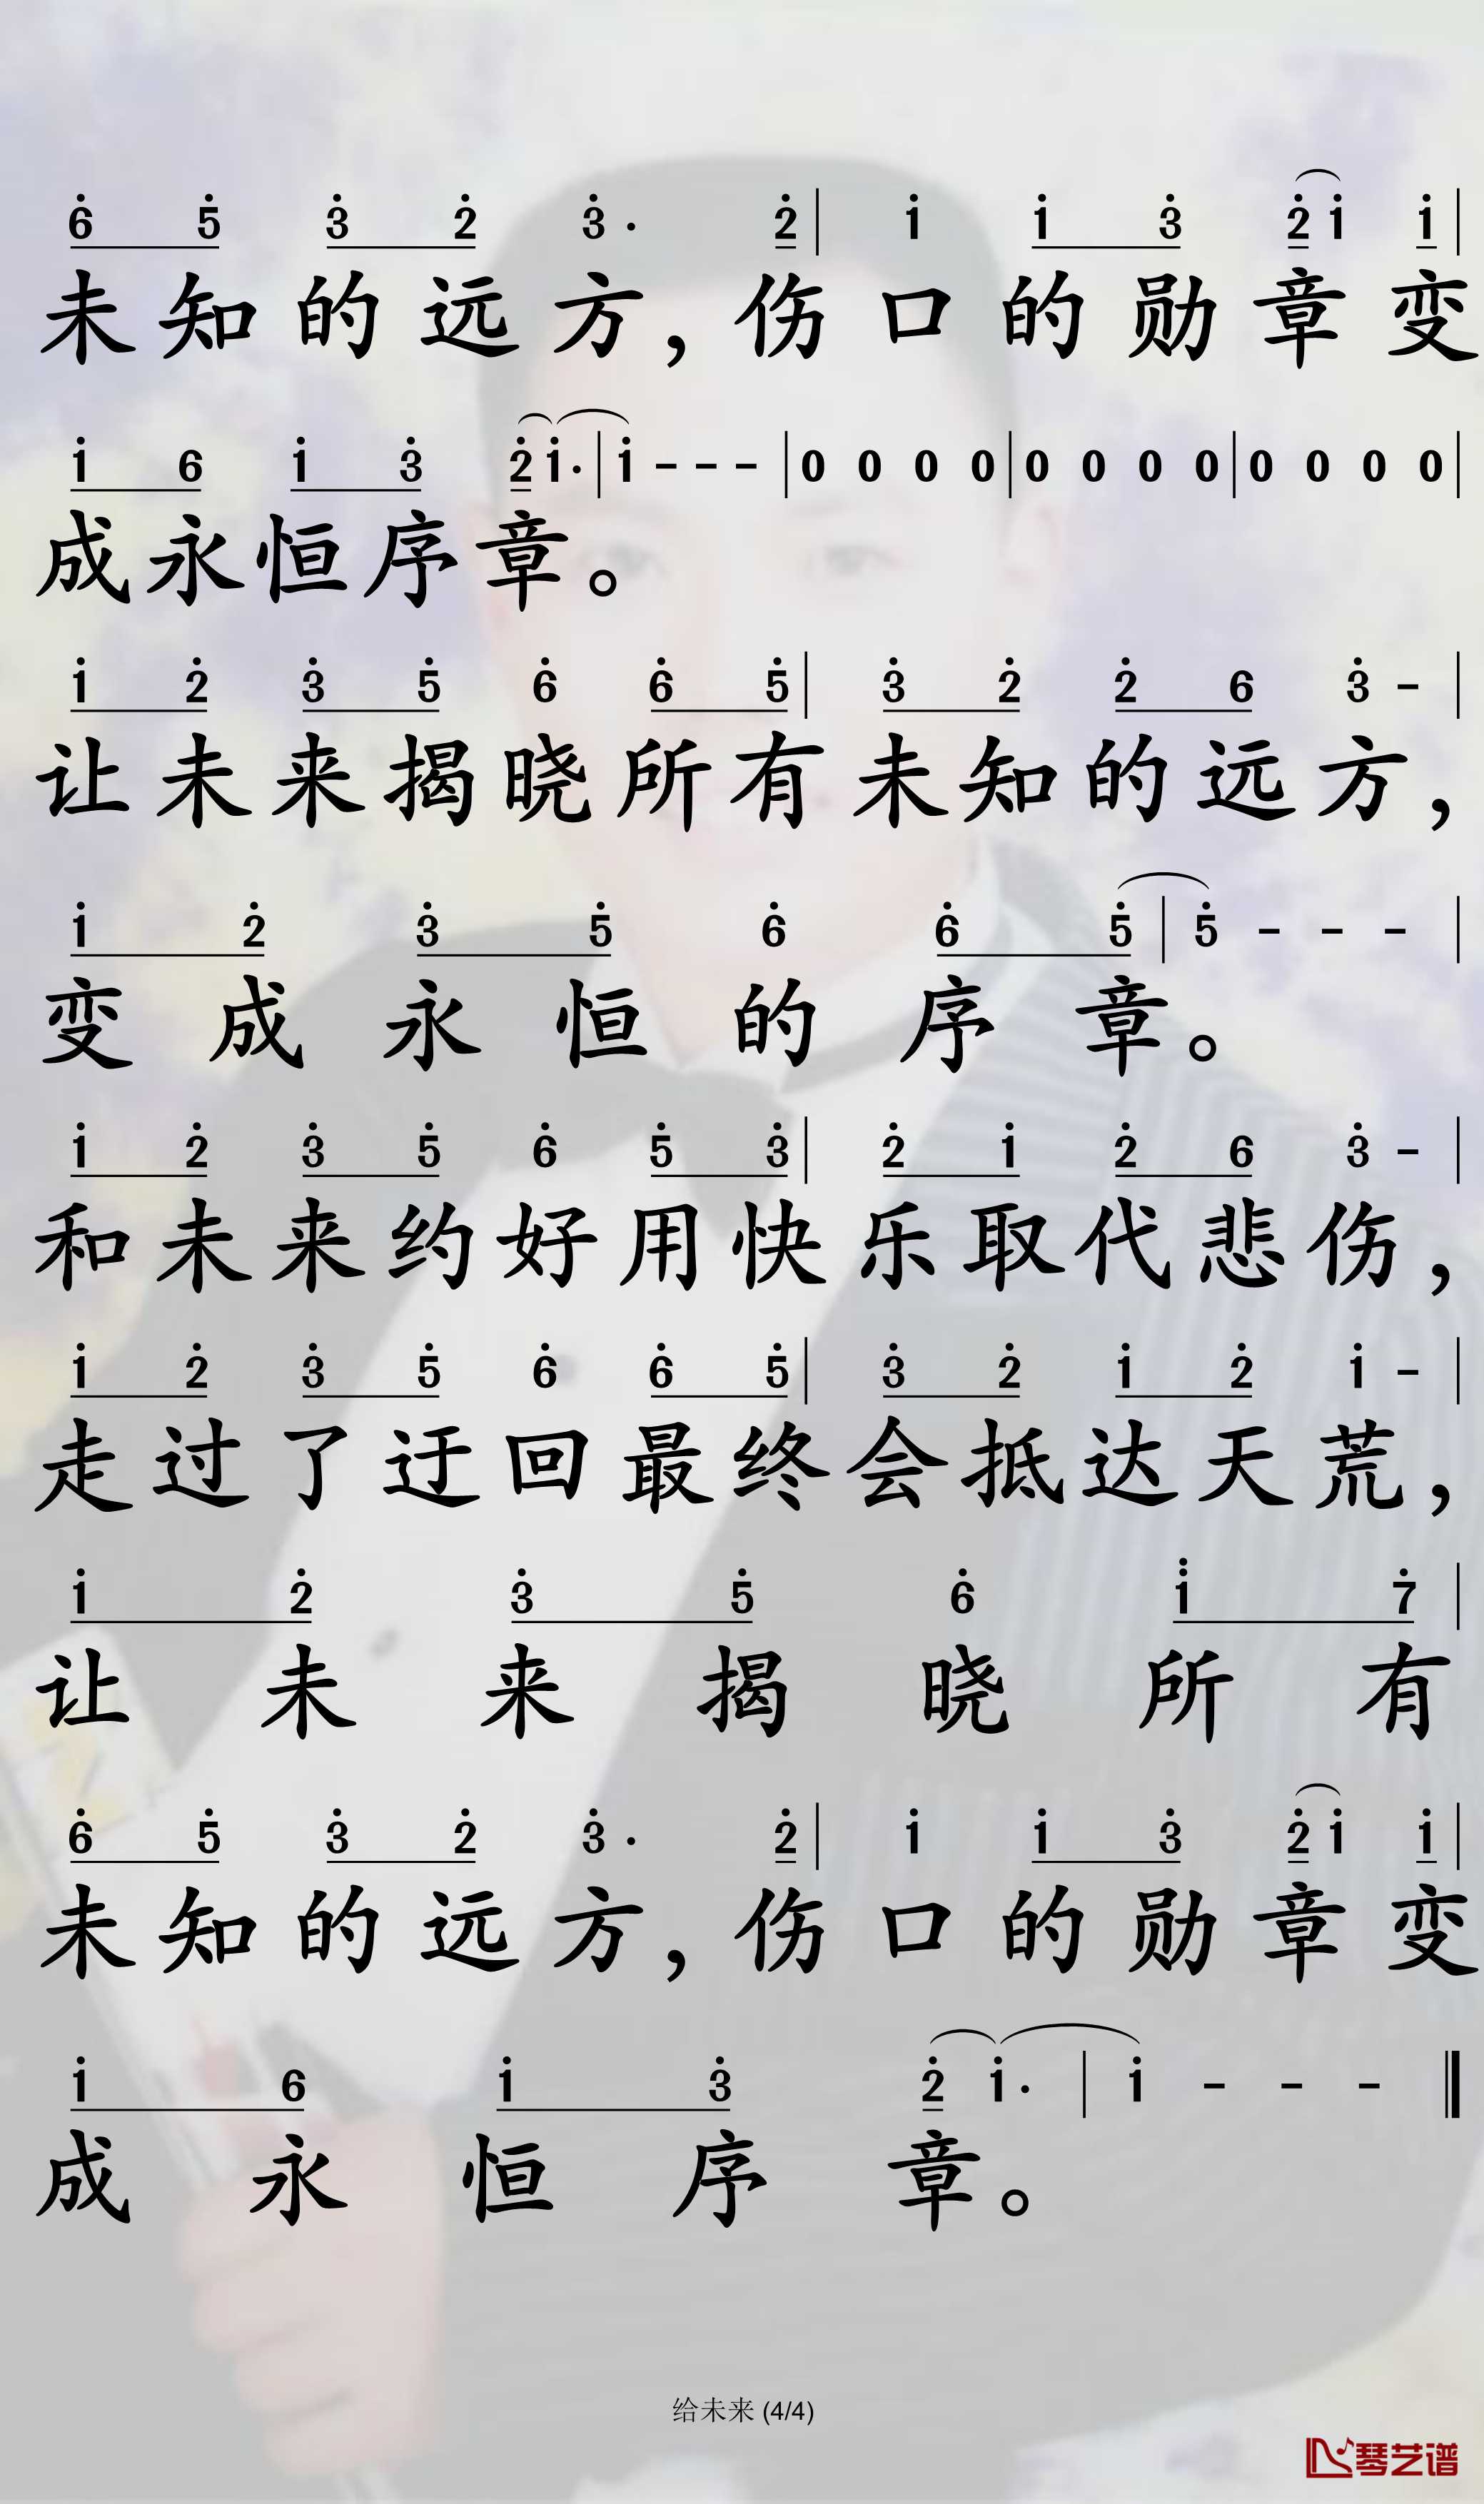 6̇ 5̇ 3̇ 2̇ 3̇· 2̇ | 1̇ 1̇ 3̇ 2̇ 1̇ 1̇ |
未知的远方，伤口的勋章变
1̇ 6 1̇ 3̇ 2̇ 1̇· | 1̇ - - - | 0 0 0 0 | 0 0 0 0 | 0 0 0 0 |
成永恒序章。
1̇ 2̇ 3̇ 5̇ 6̇ 6̇ 5̇ | 3̇ 2̇ 2̇ 6 3̇ - |
让未来揭晓所有未知的远方，
1̇ 2̇ 3̇ 5̇ 6̇ 6̇ 5̇ | 5̇ - - - |
变成永恒的序章。
1̇ 2̇ 3̇ 5̇ 6̇ 5̇ 3̇ | 2̇ 1̇ 2̇ 6 3̇ - |
和未来约好用快乐取代悲伤，
1̇ 2̇ 3̇ 5̇ 6̇ 6̇ 5̇ | 3̇ 2̇ 1̇ 2̇ 1̇ - |
走过了迂回最终会抵达天荒，
1̇ 2̇ 3̇ 5̇ 6̇ 1̈ 7̇ |
让未来揭晓所有
6̇ 5̇ 3̇ 2̇ 3̇· 2̇ | 1̇ 1̇ 3̇ 2̇ 1̇ 1̇ |
未知的远方，伤口的勋章变
1̇ 6 1̇ 3̇ 2̇ 1̇· | 1̇ - - - ‖
成永恒序章。
给未来 (4/4)
琴艺谱